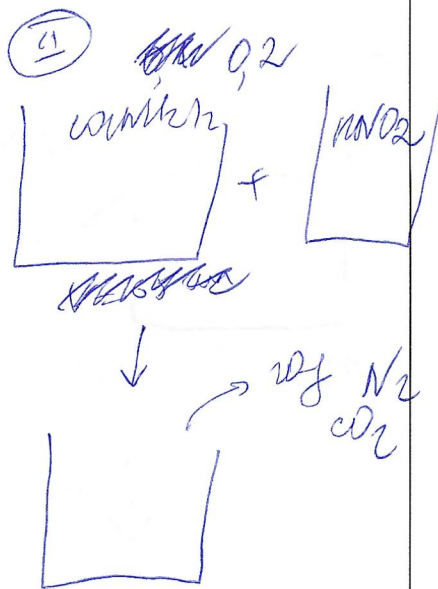 C1
0,2
CO(NH2)2
+
HNO2
N2
CO2